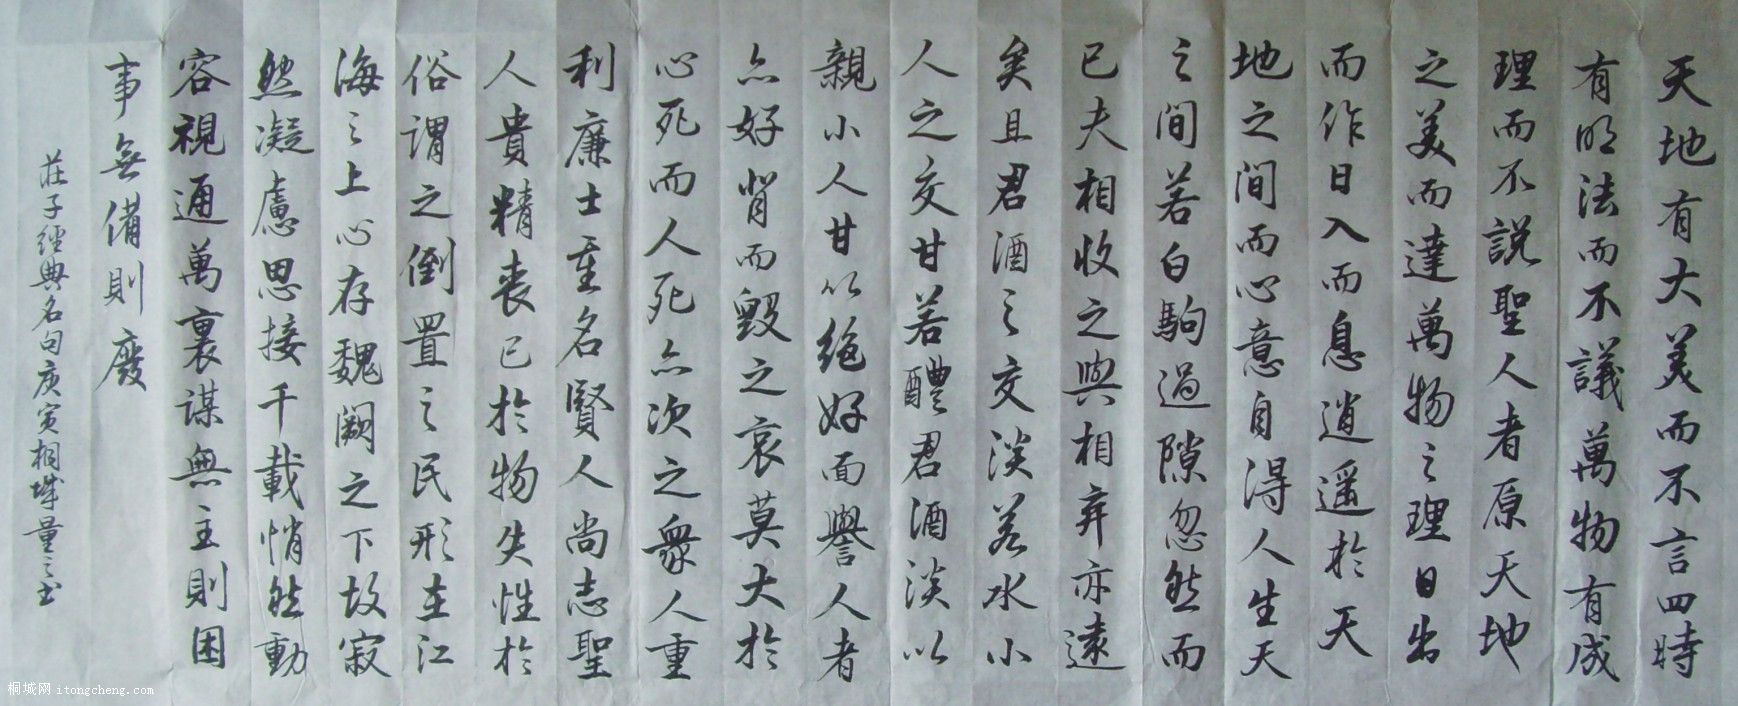 天地有大美而不言四時
有明法而不議萬物有成
理而不説聖人者原天地
之美而達萬物之理日出
而作日入而息逍遥於天
地之间而心意自得人生天
之间若白駒過隙忽然而
已夫相收之與相弃亦遠
矣且君酒之交淡若水小
人之交甘若醴君酒淡以
親小人甘以绝好面譽人者
亦好背而毀之哀莫大於
心死而人死亦次之衆人重
利廉士重名賢人尚志聖
人貴精丧己於物失性於
俗謂之倒置之民形在江
海之上心存魏阙之下故寂
然凝慮思接千載悄然動
容視通萬裏谋無主則困
事無備則廢
莊子經典名句庚寅桐城量之书
桐城网 itongcheng.com